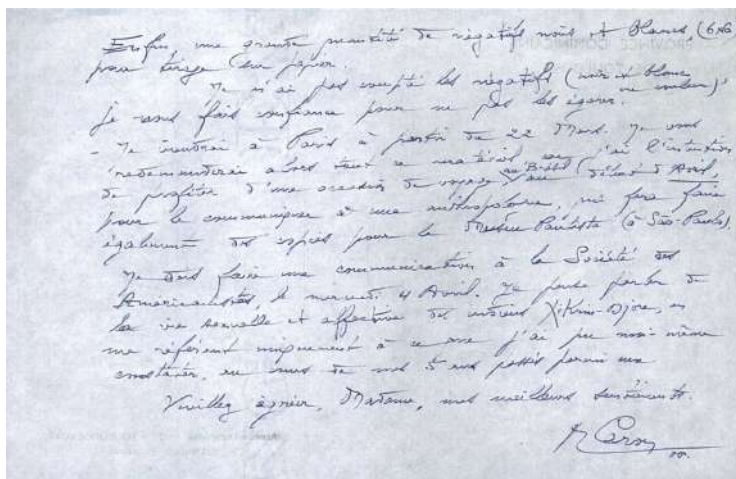 Enfin, une grande quantité de négatifs noirs et blancs, (6x6)
pour tirage sur papier.
Je n'ai pas compté les négatifs (noir et blanc
ou couleur),
je vous fais confiance pour ne pas les égarer.
- Je viendrai à Paris à partir du 22 Mars. Je vous
redemanderai alors tout ce matériel car j'ai l'intention
de profiter d'une occasion de voyage au Brésil (début d'Avril,
pour le communiquer à une anthropologue, qui fera faire
également des copies pour le Musée Pauliste (à São-Paulo).
Je dois faire une communication à la Société des
Américanistes, le mercredi 4 Avril. Je pense parler de
la vie sexuelle et affective des indiens Xikrin-Djore, en
me référant uniquement à ce que j'ai pu moi-même
constater, au cours de mes 5 ans passés parmi eux
Veuillez agréer, Madame, mes meilleurs sentiments.